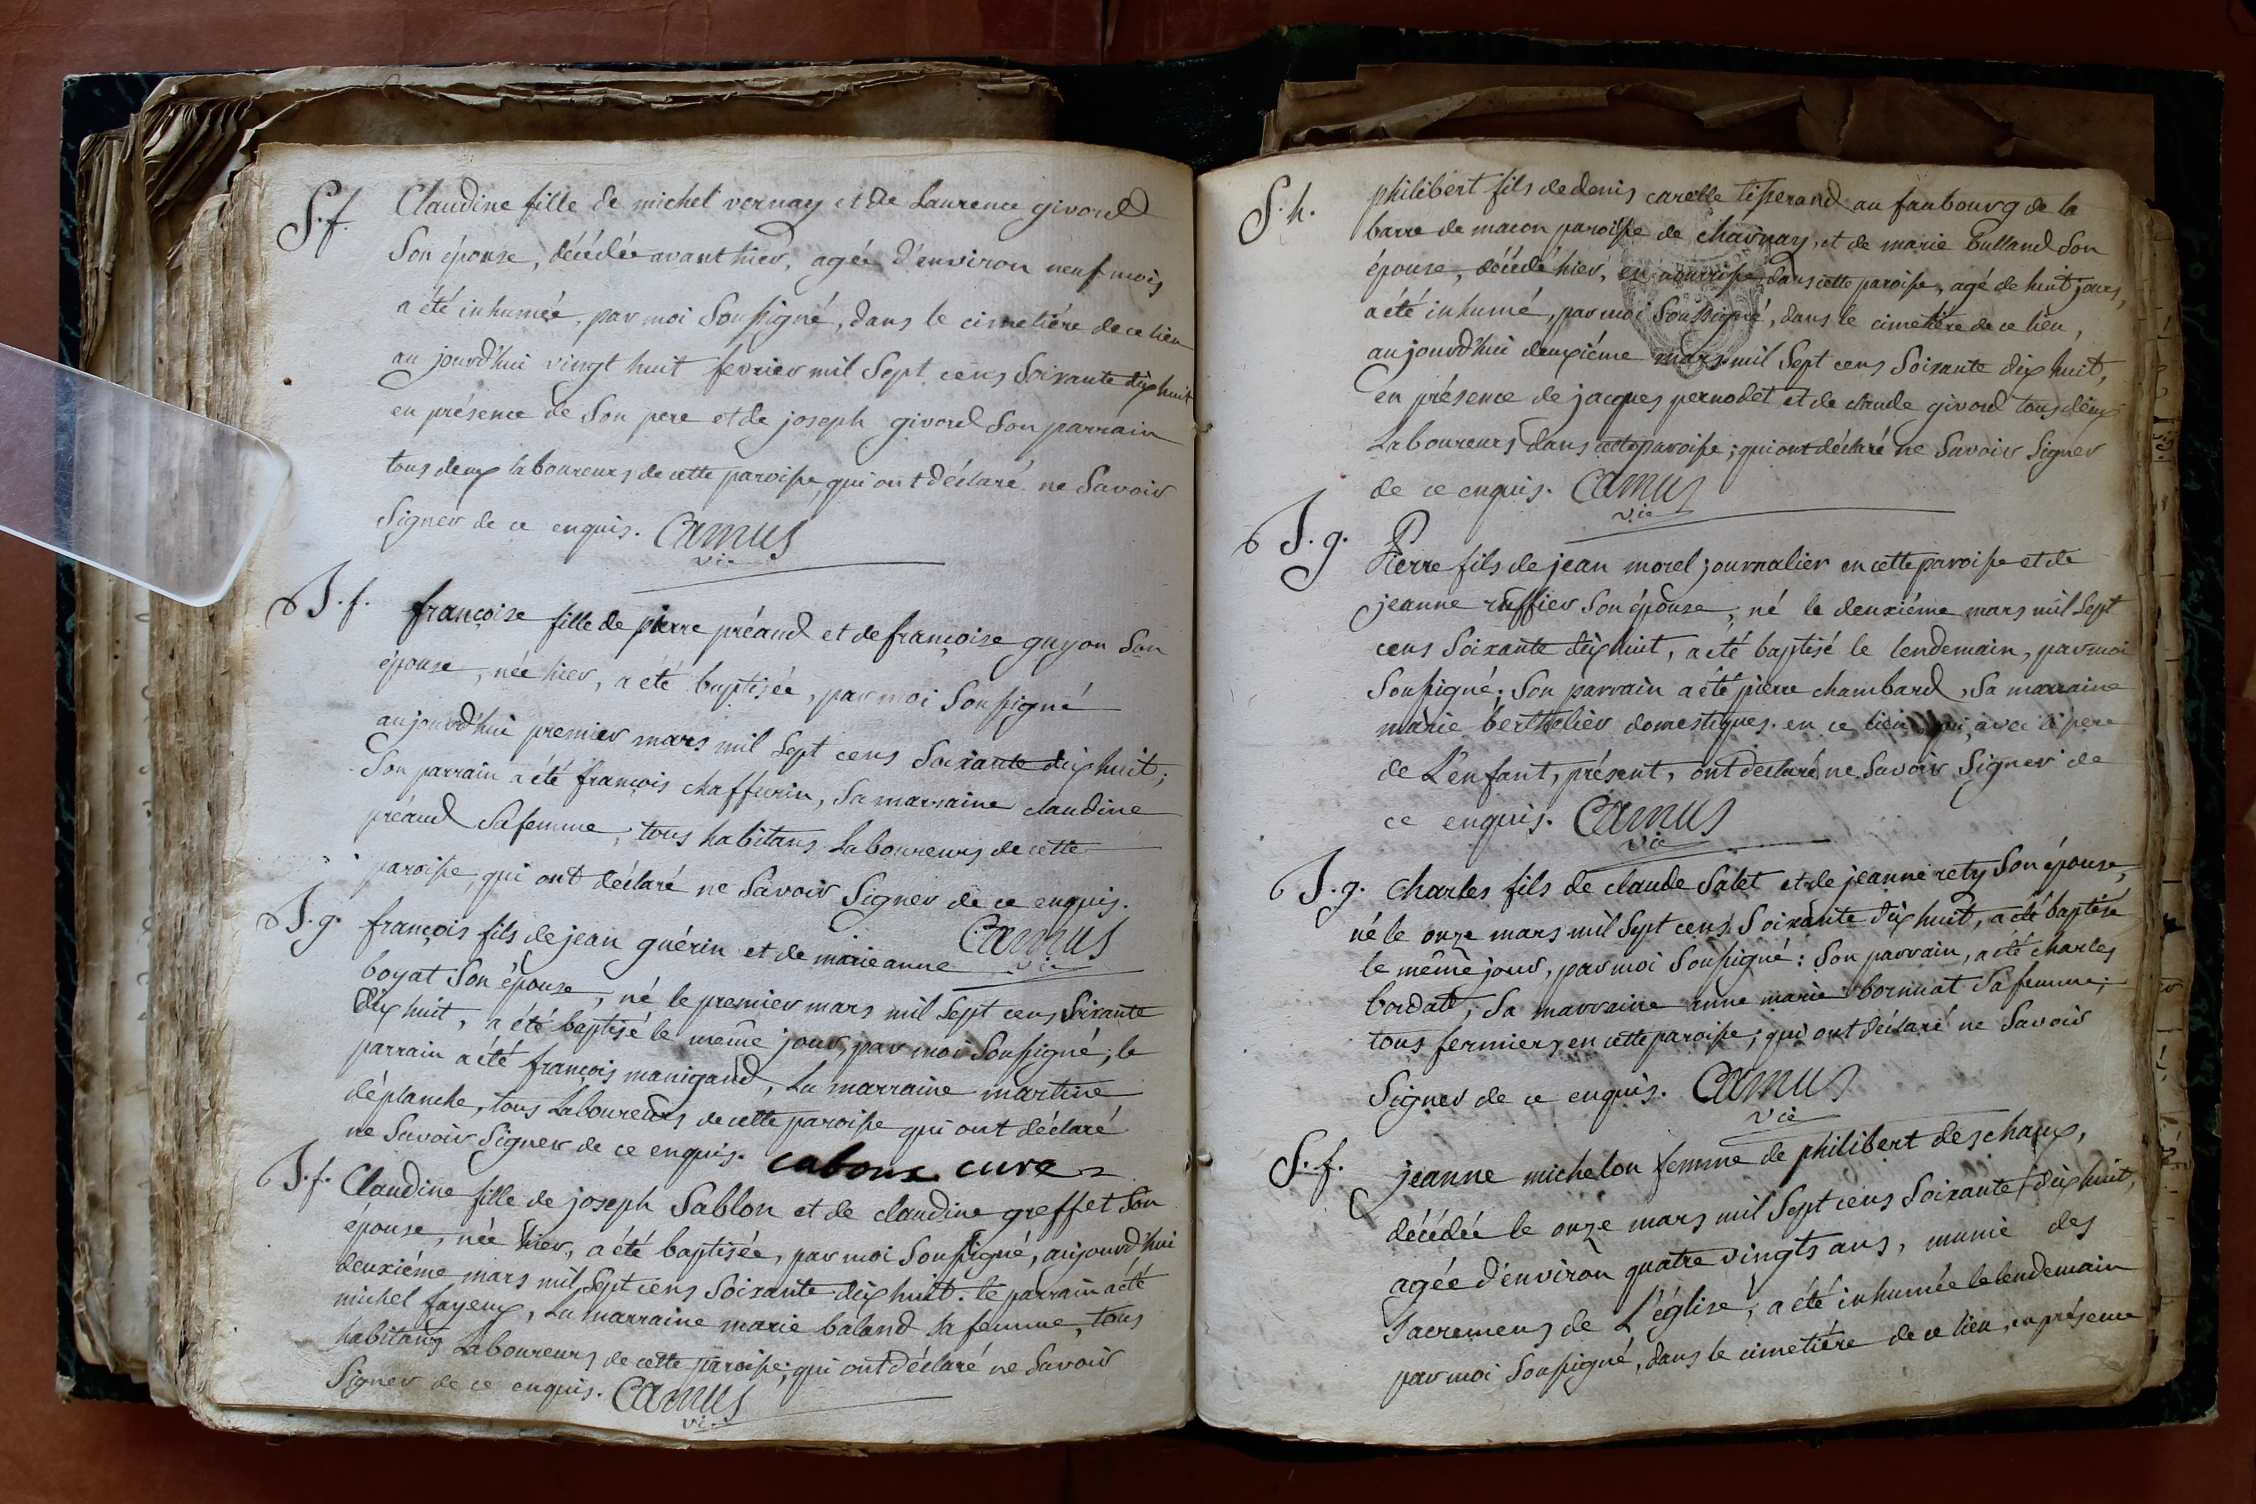 S.f. Claudine fille de michel vernay et de Laurence givord
Son épouse, décédée avant hier, agée d'environ neuf mois
a été inhumée, par moi Soussigné, dans le cimetiére de ce lieu
aujourd'hui vingt huit fevrier mil Sept cens Soixante dix huit
en présence de Son pere et de joseph givord Son parrain
tous deux laboureurs de cette paroisse, qui ont déclaré ne Savoir
Signer de ce enquis. Camus
vic
B.f. françoise fille de pierre préaud et de françoise guyon Son
épouse, née hier, a été baptisée, par moi Soussigné
aujourd'hui premier mars mil Sept cens Soixante dix huit;
Son parrain a été françois chaffurin, Sa marraine claudine
préaud Sa femme, tous habitans Laboureurs de cette
paroisse, qui ont déclaré ne Savoir Signer de ce enquis.
Camus
vic
B.g. françois fils de jean guérin et de marie anne
boyat Son épouse, né le premier mars mil Sept cens Soixante
dix huit, a été baptisé le même jour, par moi Soussigné; le
parrain a été françois manigand, La marraine martine
déplanche, tous Laboureurs de cette paroisse qui ont déclaré
ne Savoir Signer de ce enquis. cure
B.f. Claudine fille de joseph Sablon et de claudine greffet Son
épouse, née hier, a été baptisée, par moi Soussigné, aujourd'hui
deuxiéme mars mil Sept cens Soixante dix huit. le parrain a été
michel fayeux, La marraine marie baland Sa femme, tous
habitans Laboureurs de cette paroisse; qui ont déclaré ne Savoir
Signer de ce enquis. Camus
vic
S.h. philibert fils de denis carelle tisserand au faubourg de la
barre de macon paroisse de charnay, et de marie Bulland Son
épouse, décédé hier, en nourrisse dans cette paroisse, agé de huit jours,
a été inhumé, par moi Soussigné, dans le cimetiére de ce lieu,
aujourd'hui deuxiéme mars mil Sept cens Soixante dix huit,
en présence de jacques pernodet et de claude givord tous deux
Laboureurs dans cette paroisse; qui ont déclaré ne Savoir Signer
de ce enquis. Camus
vic
B.g. Pierre fils de jean morel journalier en cette paroisse et de
jeanne ruffier Son épouse, né le deuxiéme mars mil Sept
cens Soixante dix huit, a été baptisé le lendemain, par moi
Soussigné; Son parrain a été pierre chambard, Sa marraine
marie bertholier domestiques en ce lieu qui, avec le pere
de L'enfant, présent, ont déclaré ne Savoir Signer de
ce enquis. Camus
vic
B.g. Charles fils de claude Salet et de jeanne rety Son épouse,
né le onze mars mil Sept cens Soixante dix huit, a été baptisé
le même jour, par moi Soussigné: Son parrain, a été charles
bordat; Sa marraine anne marie bornuat Sa femme;
tous fermiers en cette paroisse; qui ont déclaré ne Savoir
Signer de ce enquis. Camus
vic
S.f. jeanne michelon femme de philibert deschaux,
décédée le onze mars mil Sept cens Soixante dix huit,
agée d'environ quatre vingts ans, munie des
Sacremens de L'église, a été inhumée le lendemain
par moi Soussigné, dans le cimetiére de ce lieu, en présence